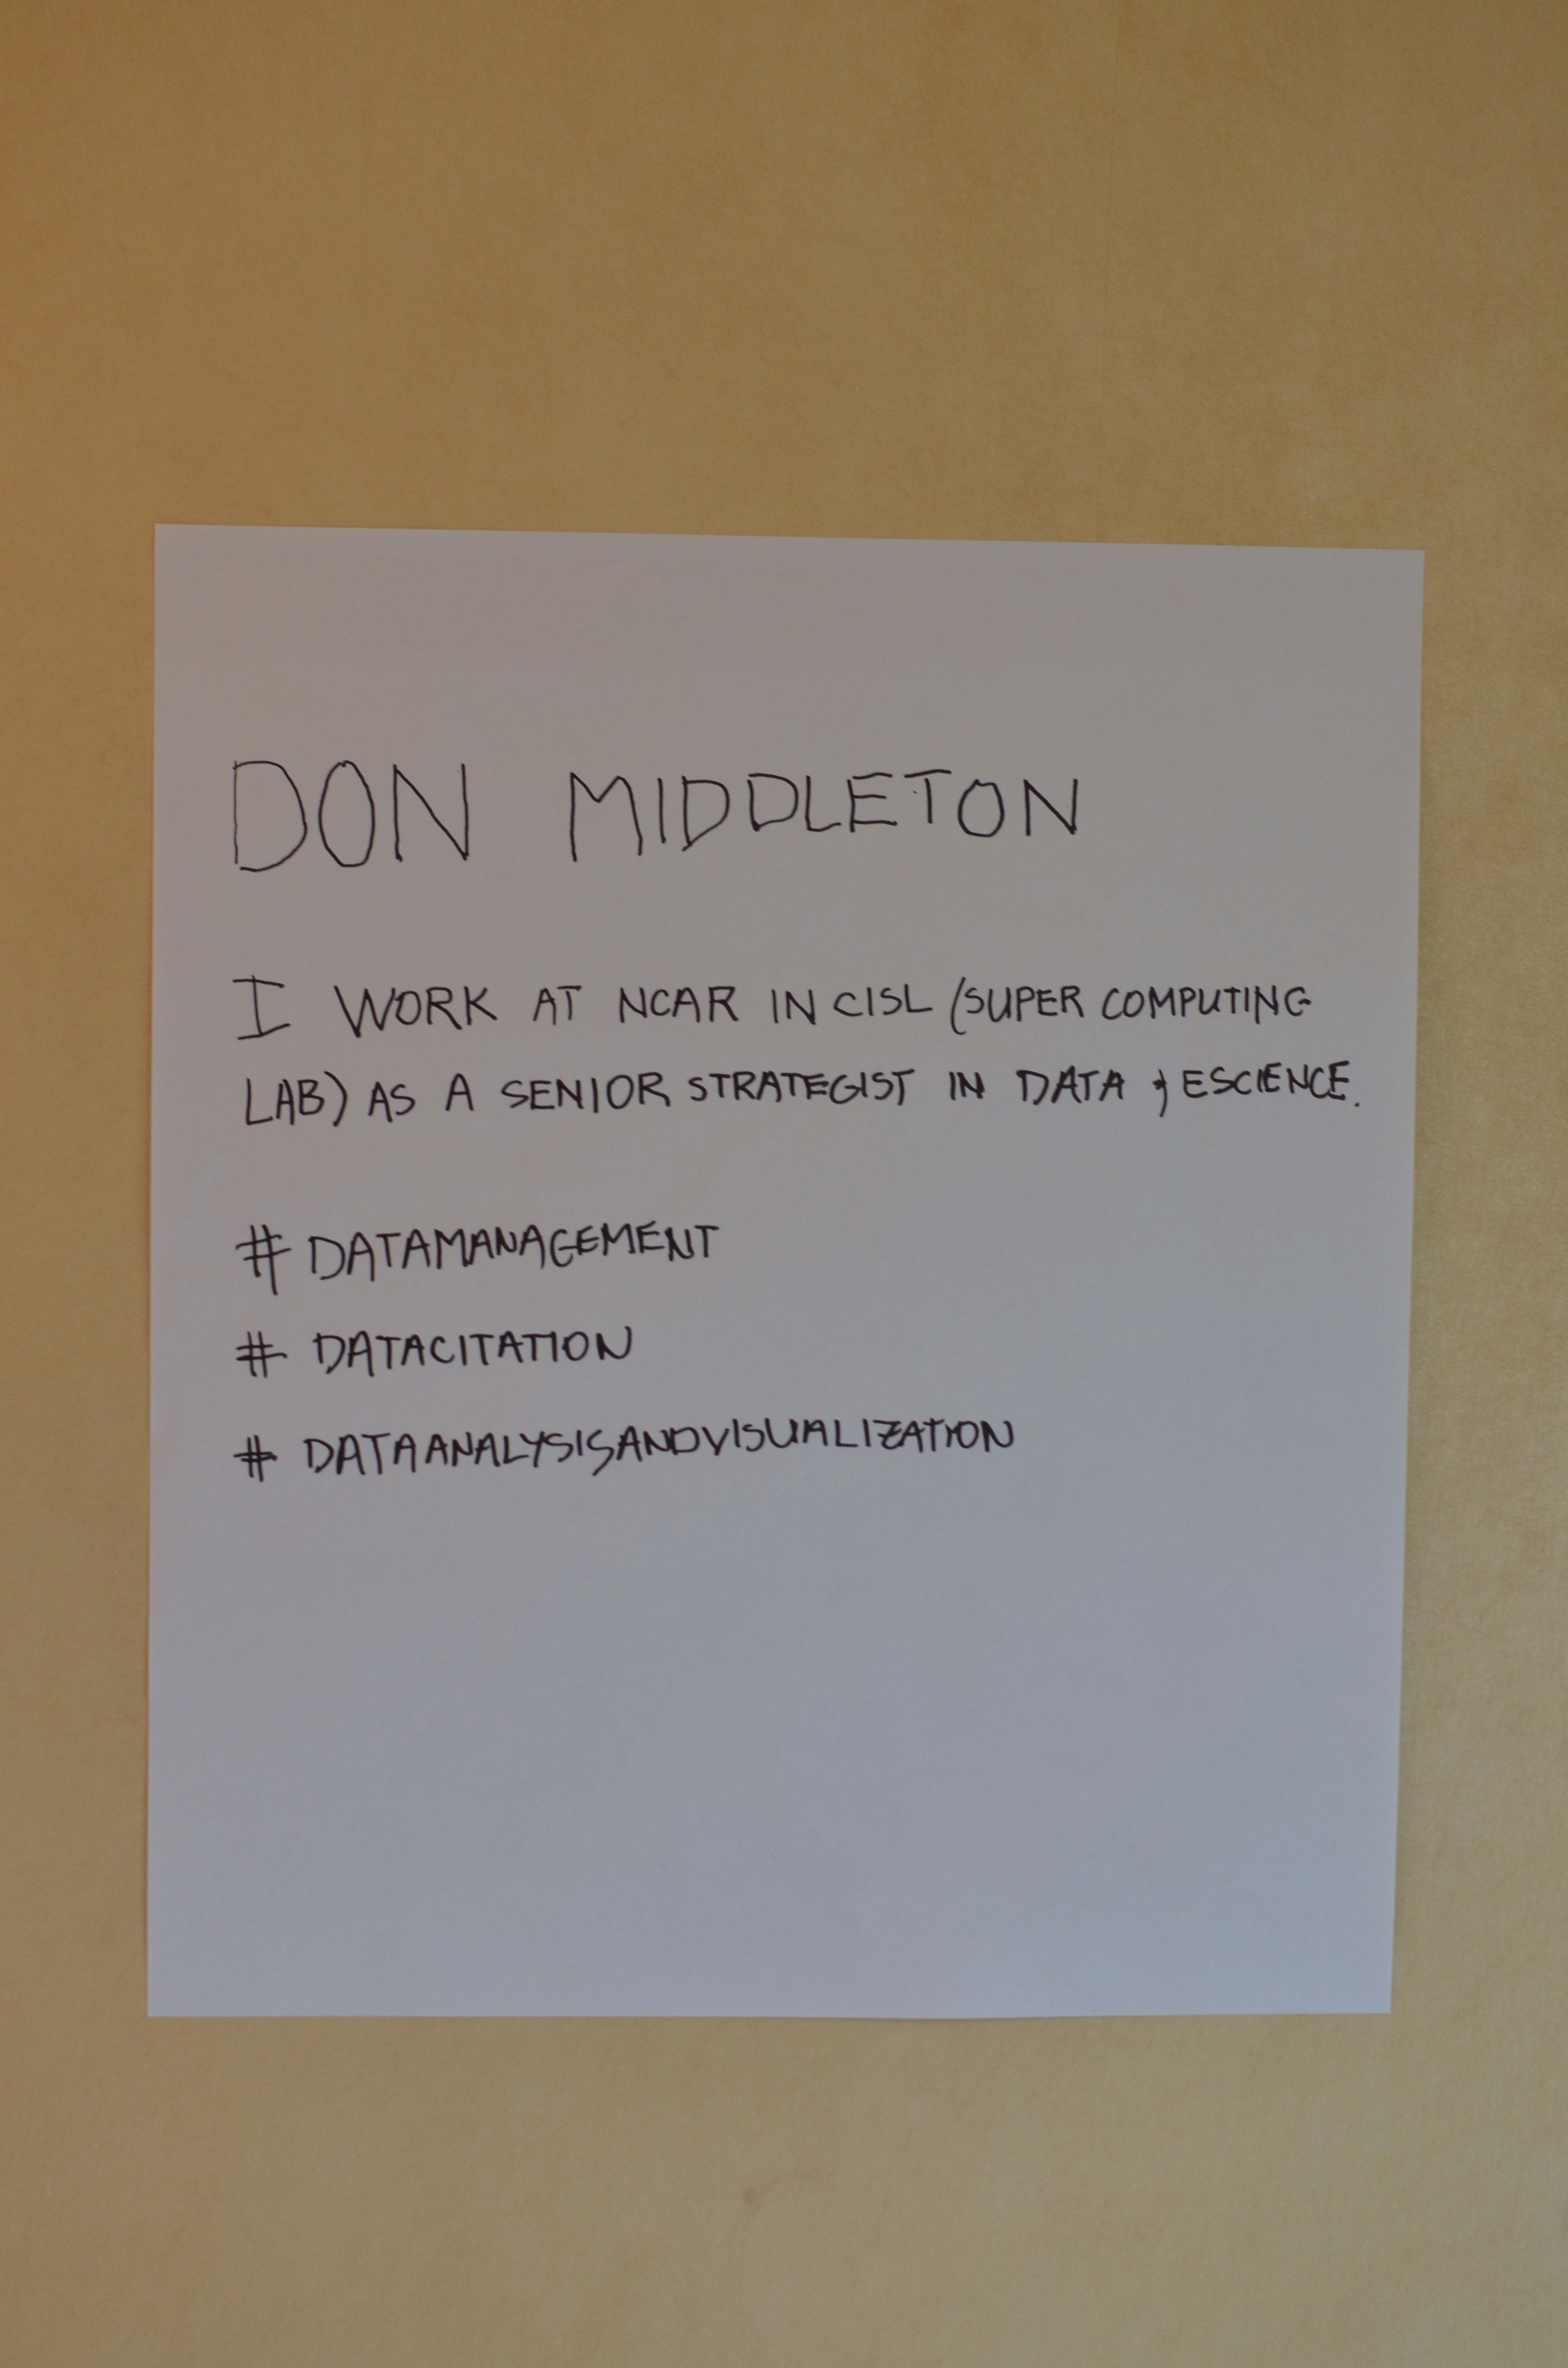 DON MIDDLETON
I WORK AT NCAR IN CISL (SUPER COMPUTING
LAB) AS A SENIOR STRATEGIST IN DATA & ESCIENCE.
# DATAMANAGEMENT
# DATACITATION
# DATAANALYSISANDVISUALIZATION